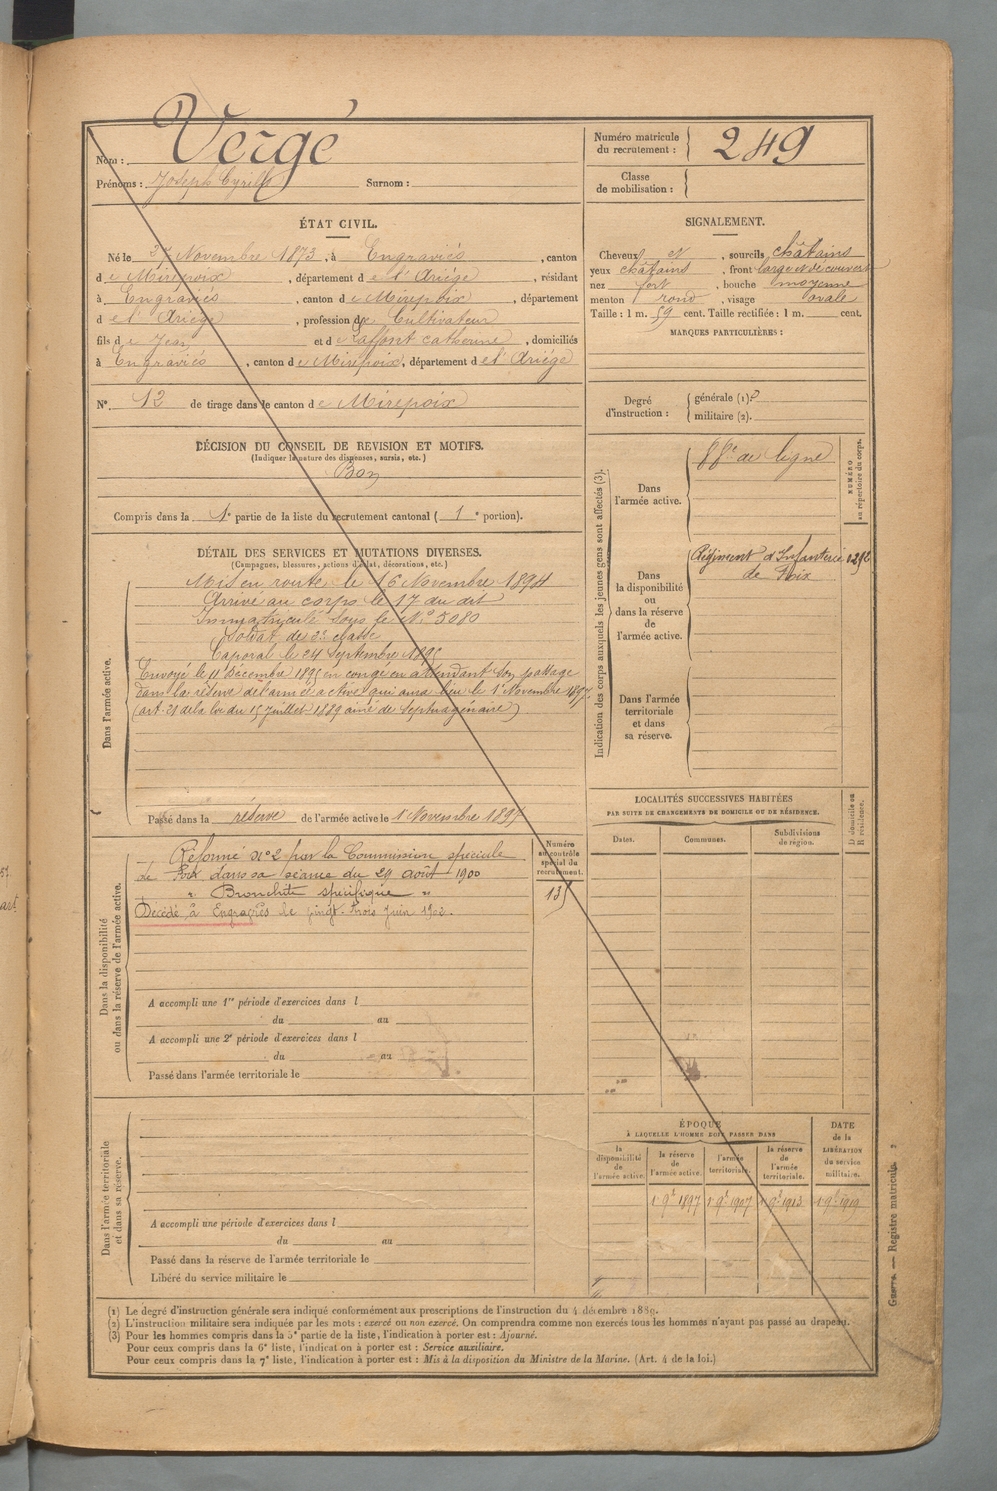 Nom : Vergé
Prénoms : Joseph Cyrille Surnom :
Numéro matricule du recrutement : 249
Classe de mobilisation :
ÉTAT CIVIL.
Né le 27 Novembre 1873, à Engraviès, canton
de Mirepoix, département de l'Ariège, résidant
à Engraviès, canton de Mirepoix, département
de l'Ariège, profession de Cultivateur
fils de Jean et de Laffont Catherine, domiciliés
à Engraviès, canton de Mirepoix, département de l'Ariège
N° 12 de tirage dans le canton de Mirepoix
SIGNALEMENT.
Cheveux et, sourcils châtains
yeux châtains, front large et découvert
nez fort, bouche moyenne
menton rond, visage ovale
Taille : 1 m. 59 cent. Taille rectifiée : 1 m. cent.
MARQUES PARTICULIÈRES :
Degré d'instruction : générale (1)
militaire (2).
DÉCISION DU CONSEIL DE REVISION ET MOTIFS.
(Indiquer la nature des dispenses, sursis, etc.)
Bon
Compris dans la 1e partie de la liste du recrutement cantonal (1e portion).
DÉTAIL DES SERVICES ET MUTATIONS DIVERSES.
(Campagnes, blessures, actions d'éclat, décorations, etc.)
Dans l'armée active.
Mis en route le 16 Novembre 1894
Arrivé au corps le 17 du dit
Immatriculé sous le N° 5080
Soldat de 2e classe
Caporal le 24 Septembre 1895
Envoyé le 11 Décembre 1895 en congé en attendant son passage
dans la réserve de l'armée active qui aura lieu le 1er Novembre 1897
(art. 21 de la loi du 15 Juillet 1889 ainé de septuagénaire)
Passé dans la réserve de l'armée active le 1er Novembre 1897
Indication des corps auxquels les jeunes gens sont affectés (3).
NUMÉRO au répertoire du corps.
Dans l'armée active.
88e de ligne
Dans la disponibilité ou dans la réserve de l'armée active.
Régiment d'Infanterie
de Foix
Dans l'armée territoriale et dans sa réserve.
Dans la disponibilité ou dans la réserve de l'armée active.
Numéro au contrôle spécial du recrutement.
Réformé N° 2 par la Commission spéciale
de Foix dans sa séance du 29 août 1900
" Bronchite spécifique "
Décédé à Engraviès le vingt-trois Juin 1902.
A accompli une 1re période d'exercices dans l
du au
A accompli une 2e période d'exercices dans l
du au
Passé dans l'armée territoriale le
LOCALITÉS SUCCESSIVES HABITÉES
PAR SUITE DE CHANGEMENTS DE DOMICILE OU DE RÉSIDENCE.
Dates. Communes. Subdivisions de région. D domicile ou R résidence.
Dans l'armée territoriale et dans sa réserve.
A accompli une période d'exercices dans l
du au
Passé dans la réserve de l'armée territoriale le
Libéré du service militaire le
ÉPOQUE
À LAQUELLE L'HOMME DOIT PASSER DANS
la disponibilité de l'armée active. la réserve de l'armée active. l'armée territoriale. la réserve de l'armée territoriale.
DATE de la LIBÉRATION du service militaire.
1 9bre 1897 1 9bre 1907 1 9bre 1913 1 9bre 1919
Guerre. — Registre matricule.
(1) Le degré d'instruction générale sera indiqué conformément aux prescriptions de l'instruction du 4 décembre 1889.
(2) L'instruction militaire sera indiquée par les mots : exercé ou non exercé. On comprendra comme non exercés tous les hommes n'ayant pas passé au drapeau.
(3) Pour les hommes compris dans la 5e partie de la liste, l'indication à porter est : Ajourné.
Pour ceux compris dans la 6e liste, l'indication à porter est : Service auxiliaire.
Pour ceux compris dans la 7e liste, l'indication à porter est : Mis à la disposition du Ministre de la Marine. (Art. 4 de la loi.)